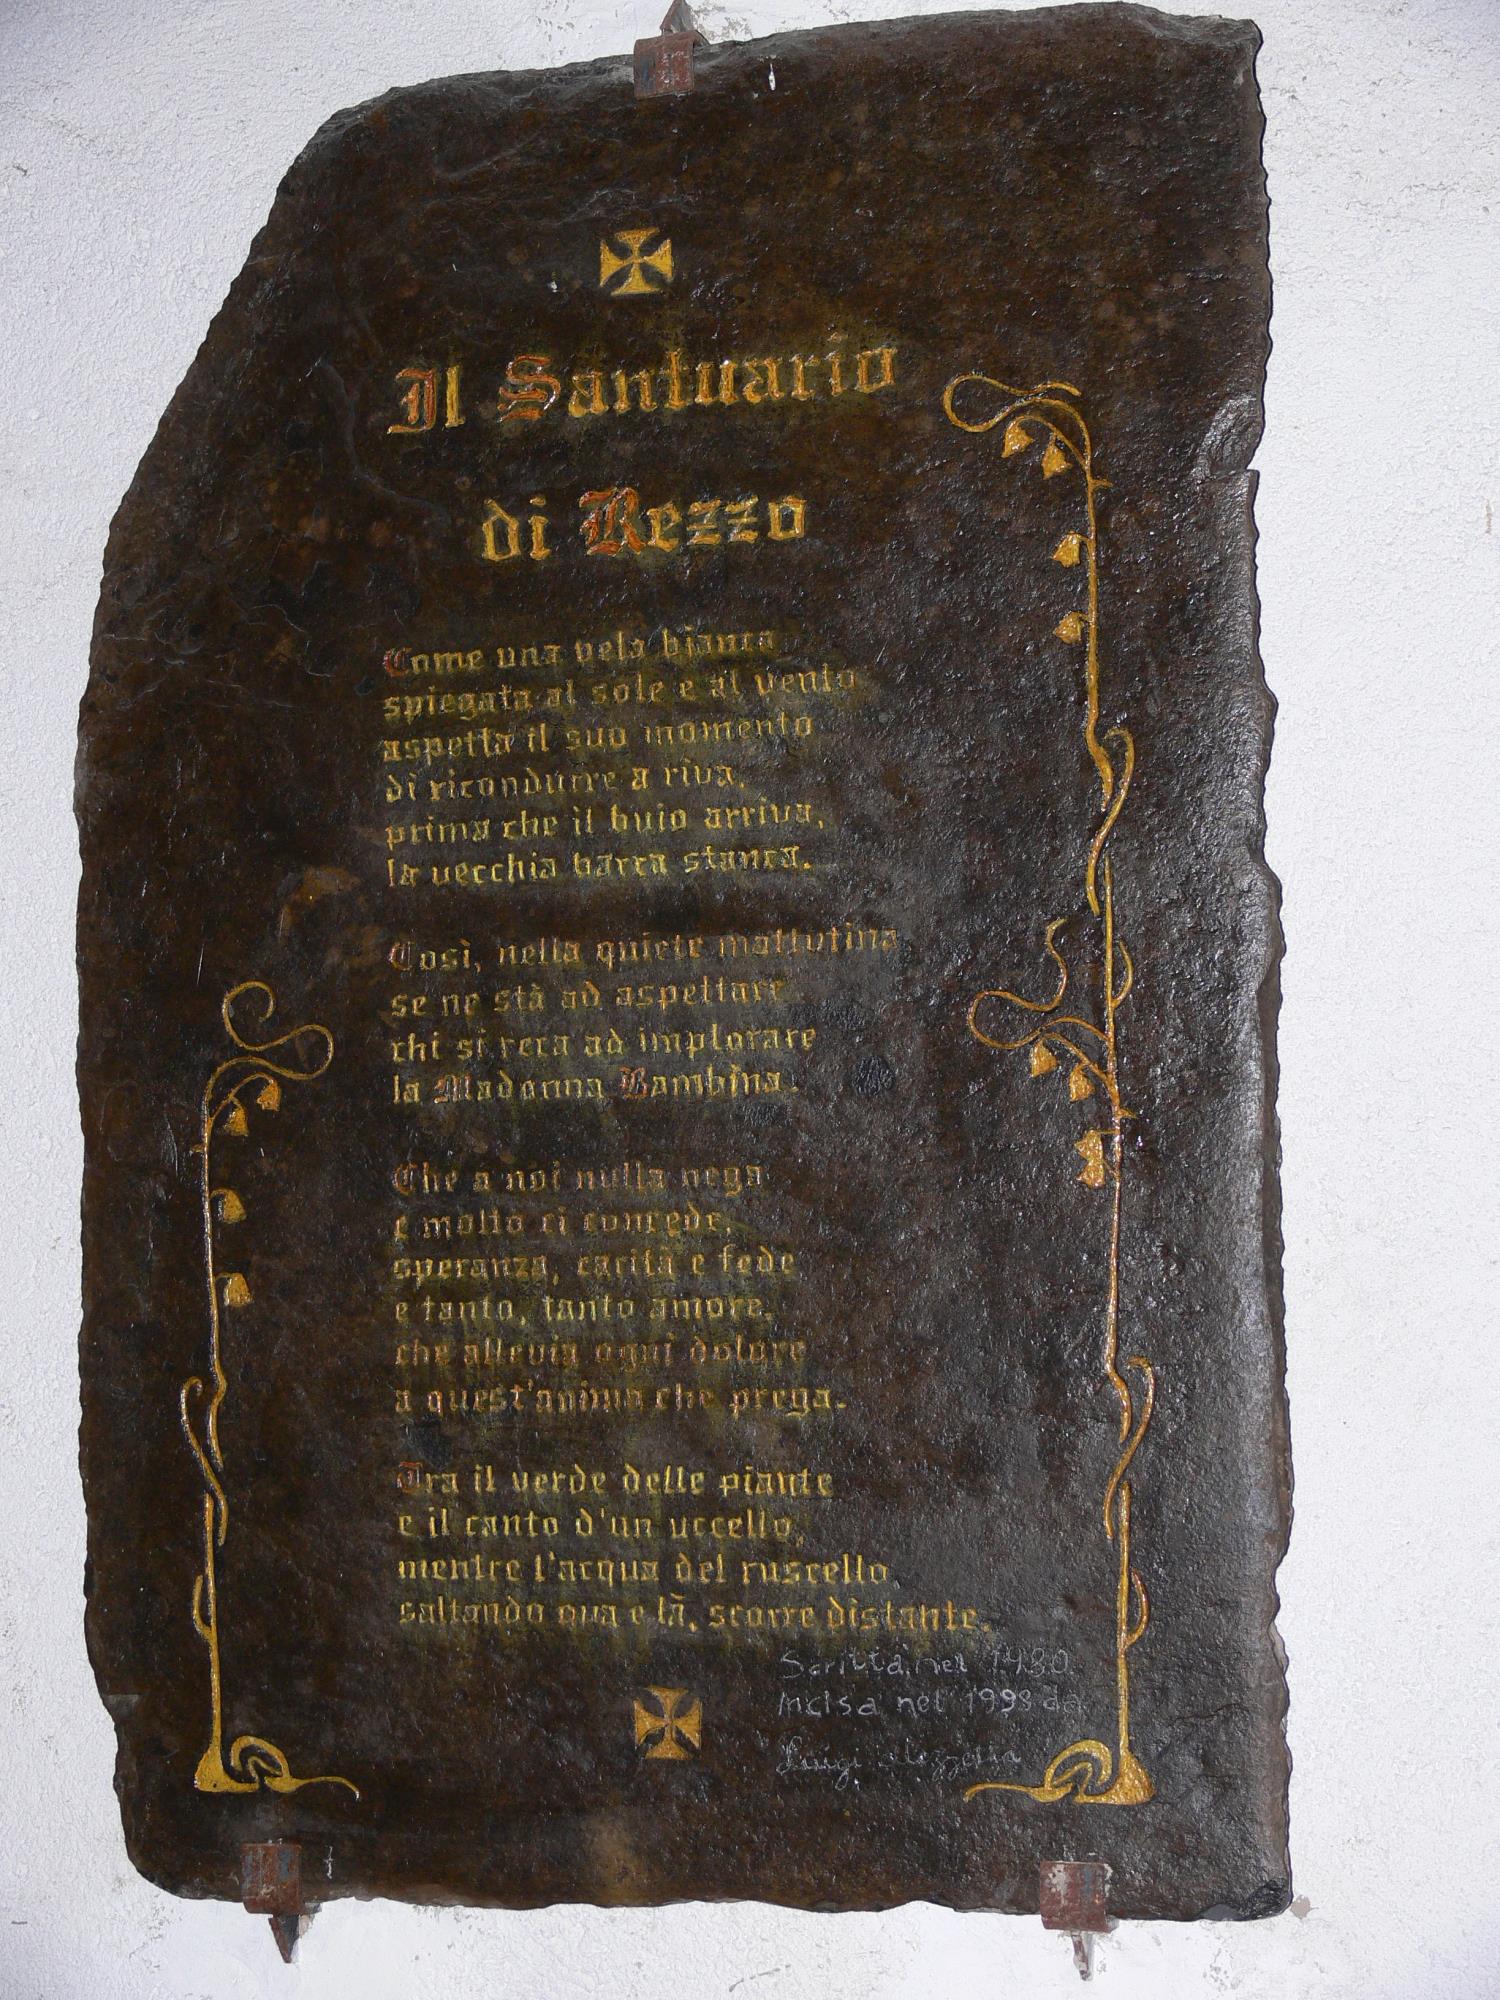 Il Santuario
di Rezzo
Come una vela bianca
spiegata al sole e al vento
aspetta il suo momento
di ricondurre a riva,
prima che il buio arriva,
la vecchia barca stanca.
Così, nella quiete mattutina
se ne stà ad aspettare
chi si reca ad implorare
la Madonna Bambina.
Che a noi nulla nega
e molto ci concede,
speranza, carità e fede
e tanto, tanto amore,
che allevia ogni dolore
a quest'anima che prega.
Tra il verde delle piante
e il canto d'un uccello,
mentre l'acqua del ruscello,
saltando qua e là, scorre distante.
Scritta nel 1980
Incisa nel 1998 da
Luigi